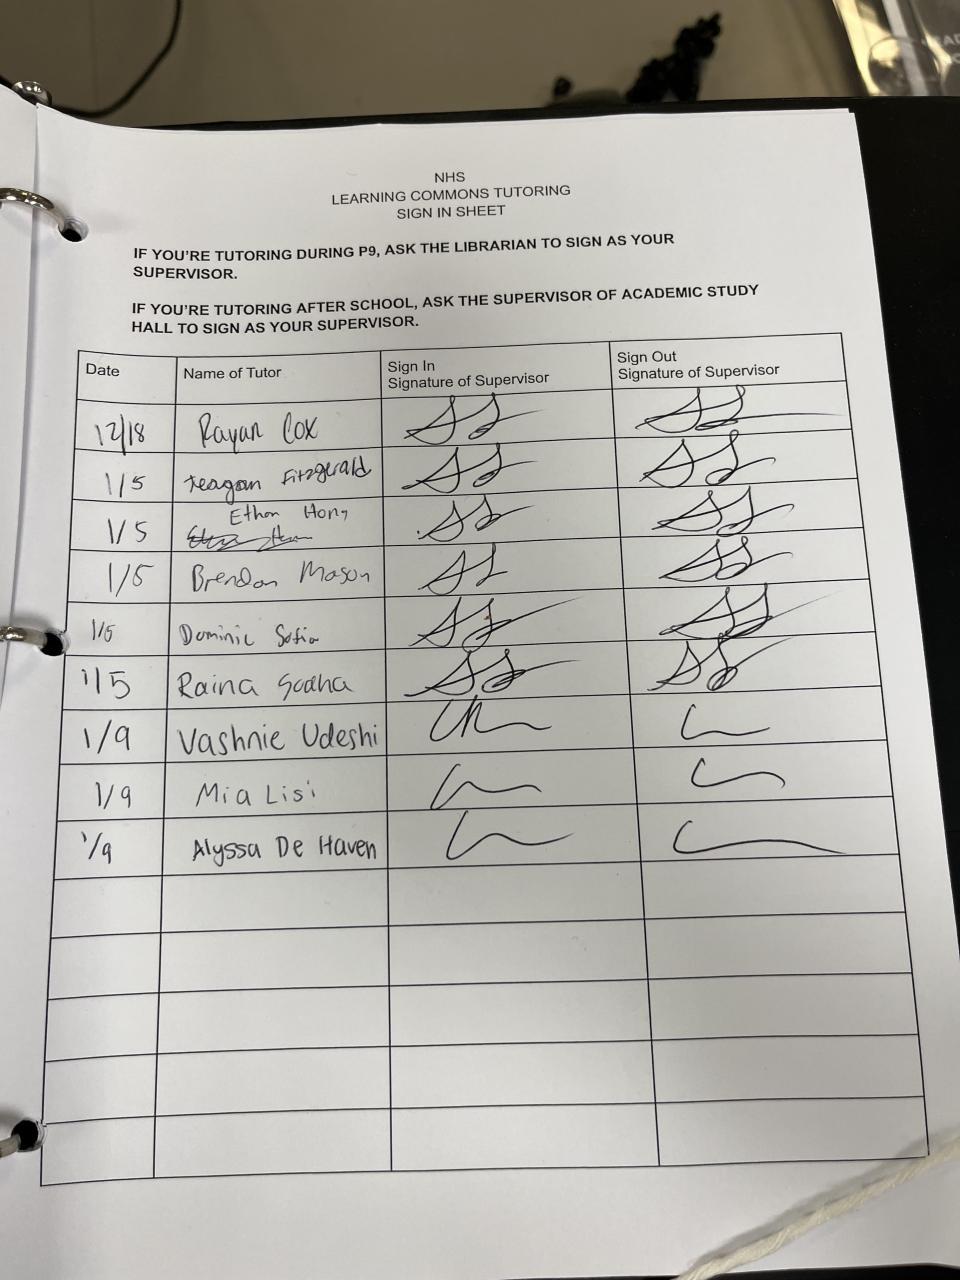 NHS
LEARNING COMMONS TUTORING
SIGN IN SHEET
IF YOU'RE TUTORING DURING P9, ASK THE LIBRARIAN TO SIGN AS YOUR
SUPERVISOR.
IF YOU'RE TUTORING AFTER SCHOOL, ASK THE SUPERVISOR OF ACADEMIC STUDY
HALL TO SIGN AS YOUR SUPERVISOR.
Date Name of Tutor Sign In Signature of Supervisor Sign Out Signature of Supervisor
12/18 Rayan Cox
1/5 Teagan Fitzgerald
1/5 Ethan Hong
1/5 Brendan Mason
1/5 Dominic Sofia
1/5 Raina Sodha
1/9 Vashnie Udeshi
1/9 Mia Lisi
1/9 Alyssa De Haven